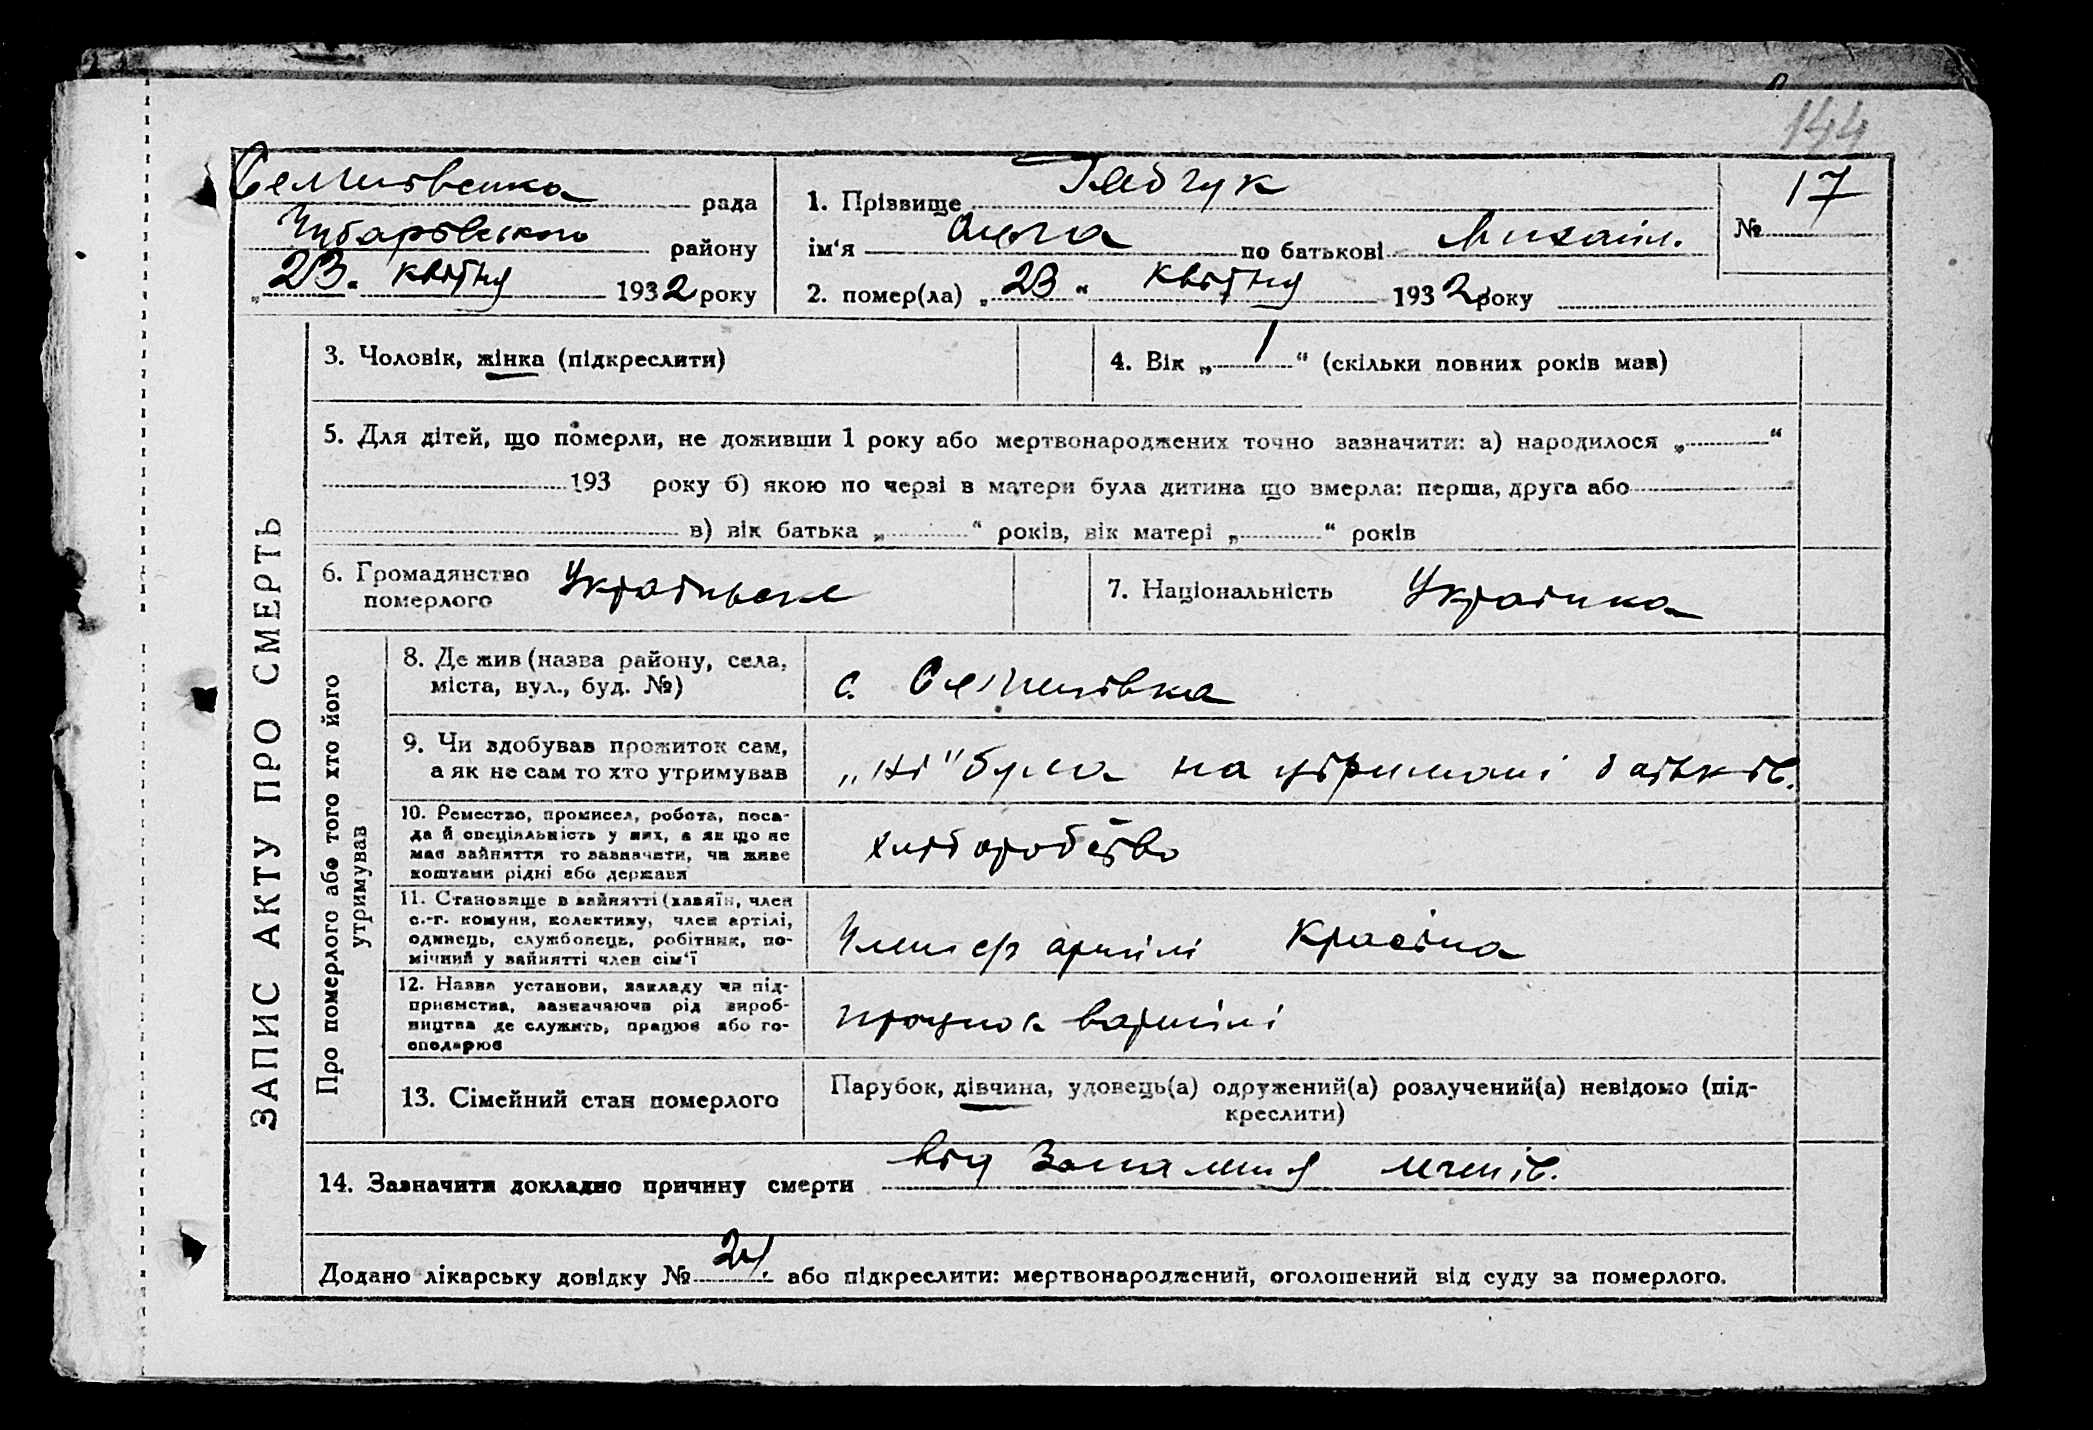 144
Семенівська рада
Чубарівського району
„23“ квітня 1932 року
1. Прізвище Бабчук
ім‘я Ольга по батькові Михайл.
№ 17
2. помер(ла) „23“ квітня 1932 року
ЗАПИС АКТУ ПРО СМЕРТЬ
3. Чоловік, жінка (підкреслити)
4. Вік „1“ (скільки повних років мав)
5. Для дітей, що померли, не доживши 1 року або мертвонароджених точно зазначити: а) народилося „ “
193 року б) якою по черзі в матери була дитина що вмерла: перша, друга або
в) вік батька „ “ років, вік матері „ “ років
6. Громадянство
померлого
Українське
7. Національність Українка
Про померлого або того хто його
утримував
8. Де жив (назва району, села,
міста, вул., буд. №)
с. Семенівка
9. Чи здобував прожиток сам,
а як не сам то хто утримував
„Ні“ була на утримані батьків.
10. Ремество, промисел, робота, поса-
да й спеціяльність у них, а як що не
має зайняття то зазначити, чи живе
коштами рідні або держави
хліборобство
11. Становище в зайнятті (хазяїн, член
с.-г. комуни, колективу, член артілі,
одинець, службовець, робітник, по-
мічний у зайнятті член сім‘ї
Член с/г артілі
12. Назва установи, закладу чи під-
приємства, зазначаючи рід вироб-
ництва де служить, працює або го-
сподарює
працює в артілі
13. Сімейний стан померлого
Парубок, дівчина, удовець(а) одружений(а) розлучений(а) невідомо (під-
креслити)
14. Зазначити докладно причину смерти від Запалення легенів.
Додано лікарську довідку № 24. або підкреслити: мертвонароджений, оголошений від суду за померлого.